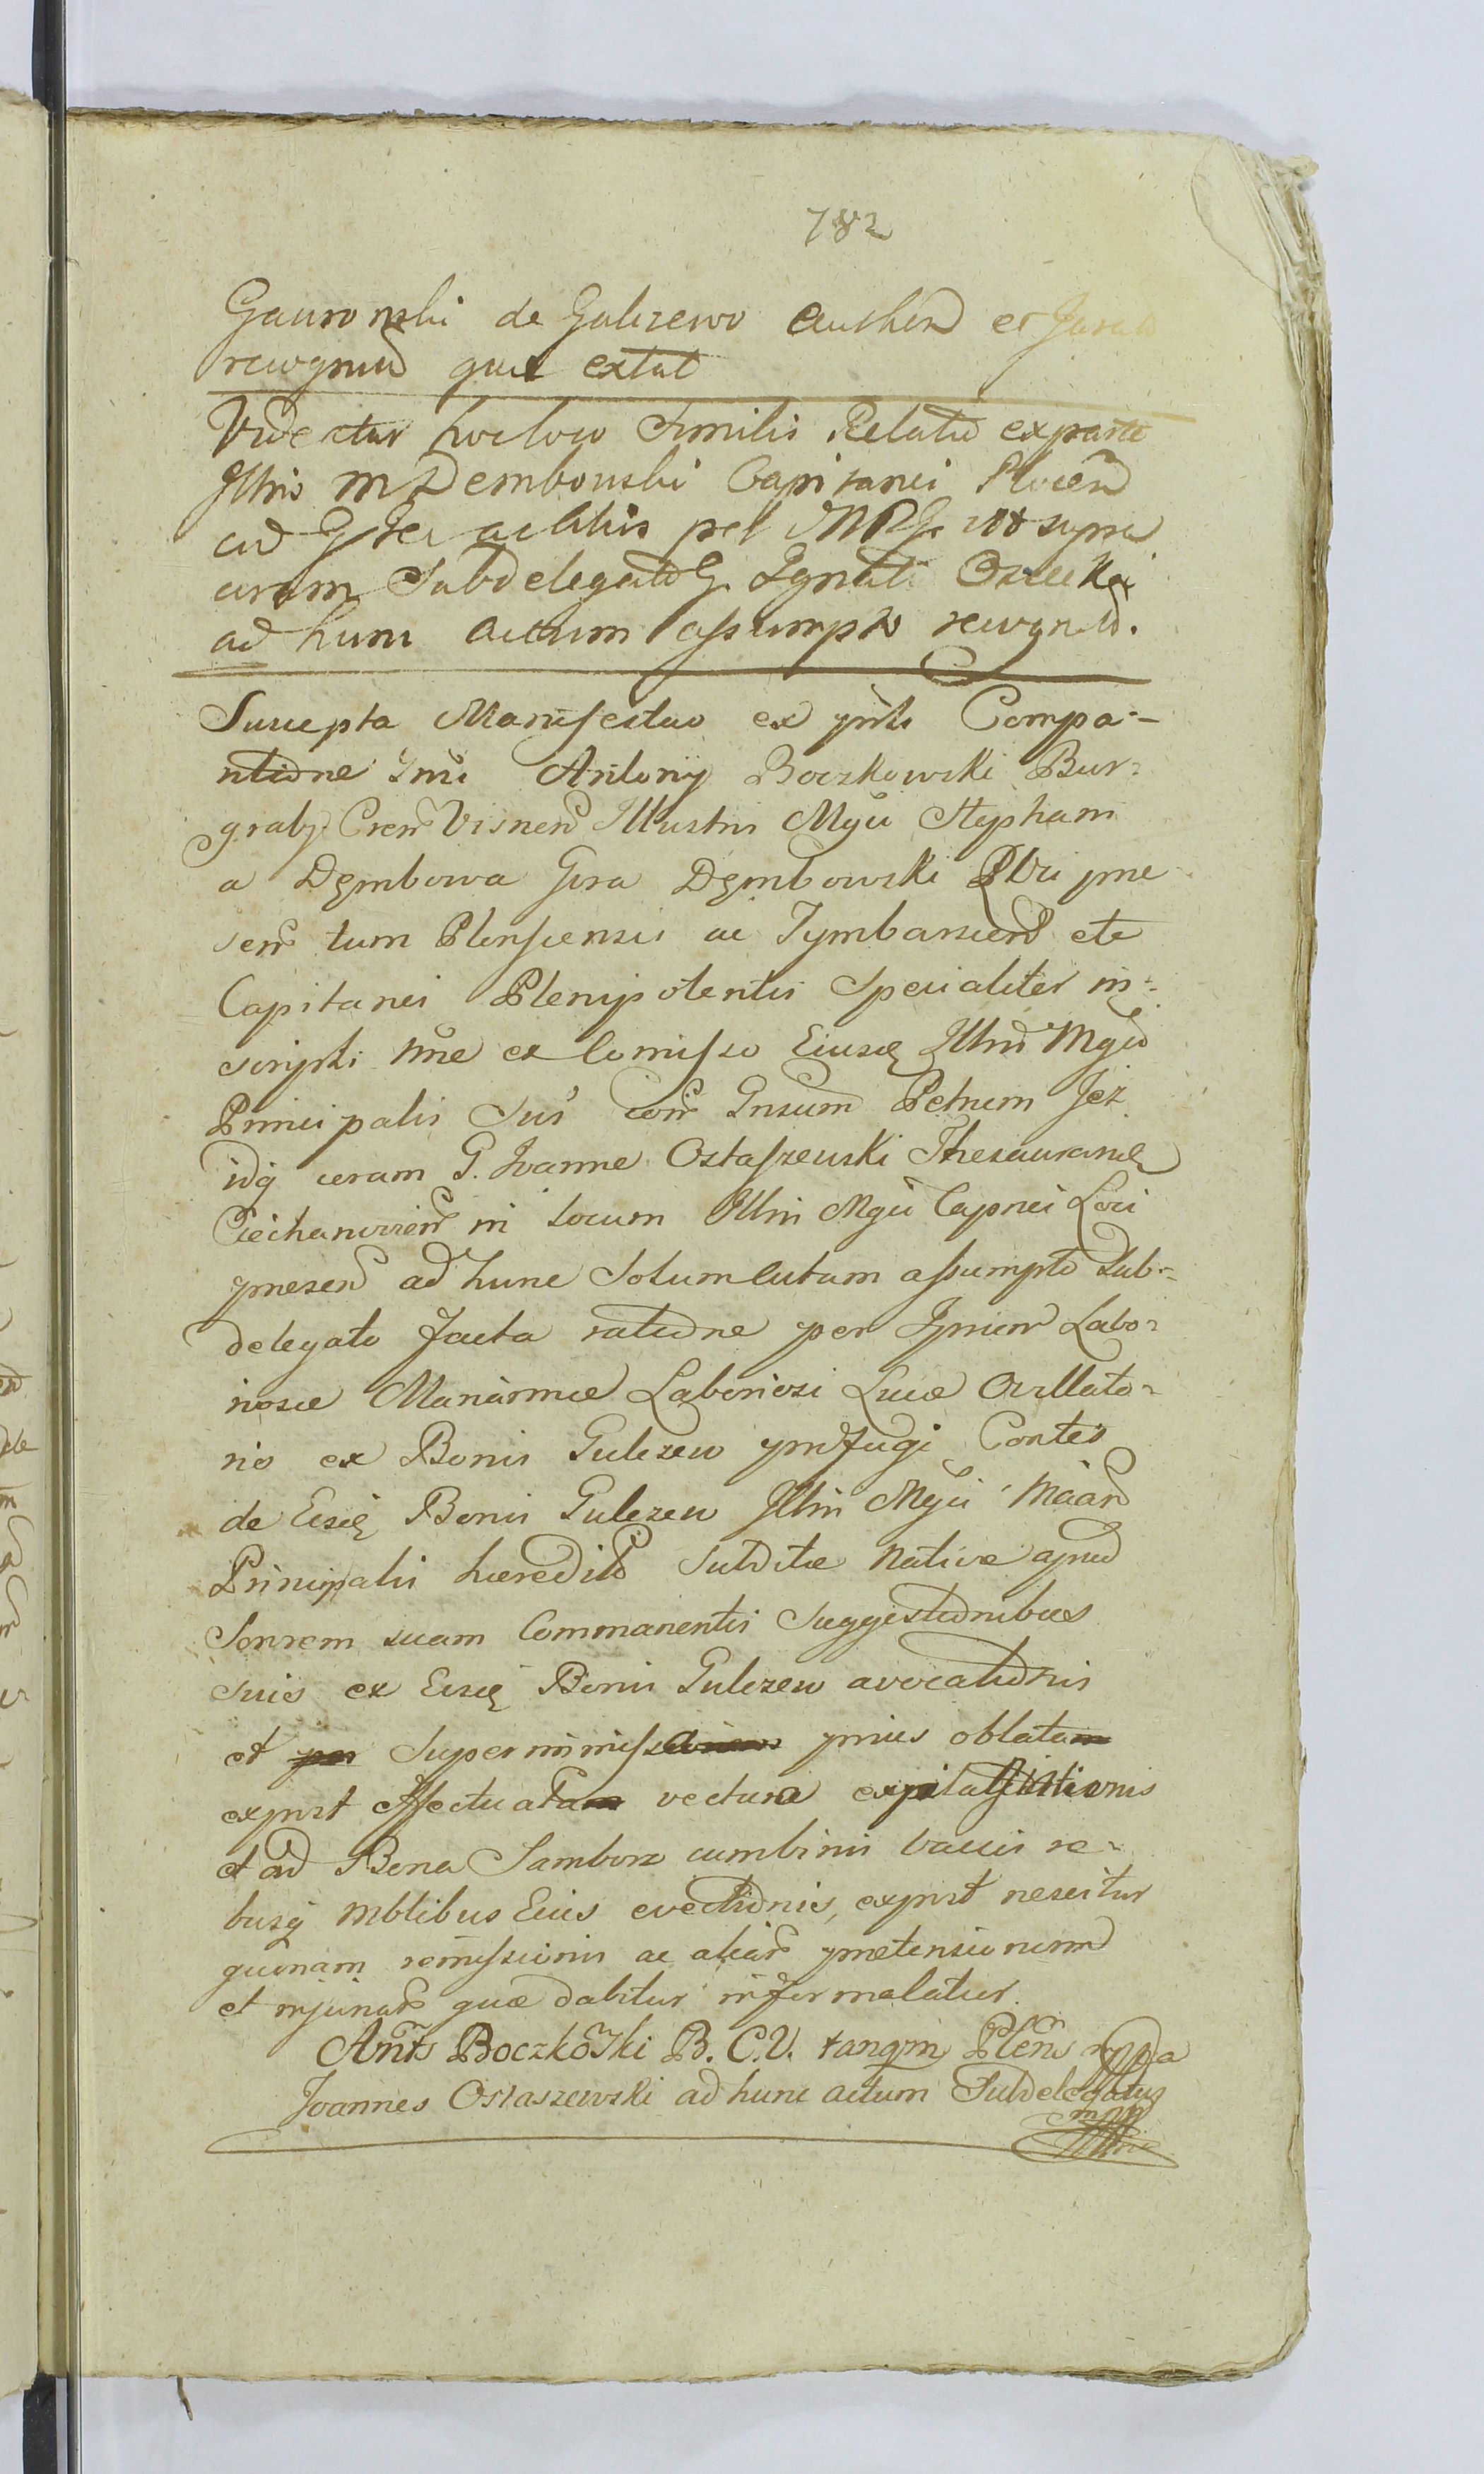 782
Gauronski de Gulczewo Authen et Jurato
recognid quit extat
Videctur hocloco Similis Relatio exparte
Illris M Dembouski Capitanei Plocen
ad
coram Subdelegato G. Ignati
ad hunc actum assumpto recognit.
Suscepta Manifestao ex pnti Compa-
ntione Gnsi Antony Boczkowski Bur-
graby Cren Visnen Illustris Mgci Stephani
a Dęmbowa Gora Dęmbowski Plci pme
sen tum Plonscensis ac Tymbarscen etc
Capitanei Plenipotentis Specialiter in-
scripti nne ex Comisso Eiusdę Illris Mgci
Principalis Sui con Gnsum Petrum Jeż
idq coram G. Joanne Ostaszewski Thesaurario
Ciechanovien in Locum Illris Mgci Capnei Loci
pmesen ad hunc Solum Actum assumpto Sub-
delegato facta ratione per Ipsum Labo-
riosæ Mariannæ Laboriosi Lucæ
rio ex Bonis Gulczew profugi Contis
de Eisdę Bonis Gulczew Illris Mgci Maan
Principalis hæredito Subditæ Nativæ apud
Sororem suam Commanentis Suggestionibus
suis ex Eisdę Bonis Gulczew avocationis
et per Superimmiss prius oblata
expost Effectuata vectura
et ad Bona Samborz cumbinis vaccis re-
busq mblibus Eius evectionis, expost nescitur
quonam remissionis ac aliar prætensionum
et injuriar quæ dabitur informalatur.
Antts Boczkowski B. C. V. tanqm Plens mppa
Joannes Ostaszewski ad hunc actum Subdelegatus
mpp